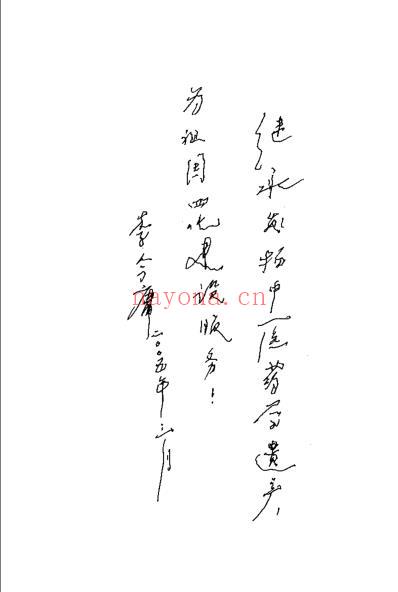 继承发扬中医药学遗产，
为祖国四化建设服务！
李今庸二〇〇五年三月
nayona.cn